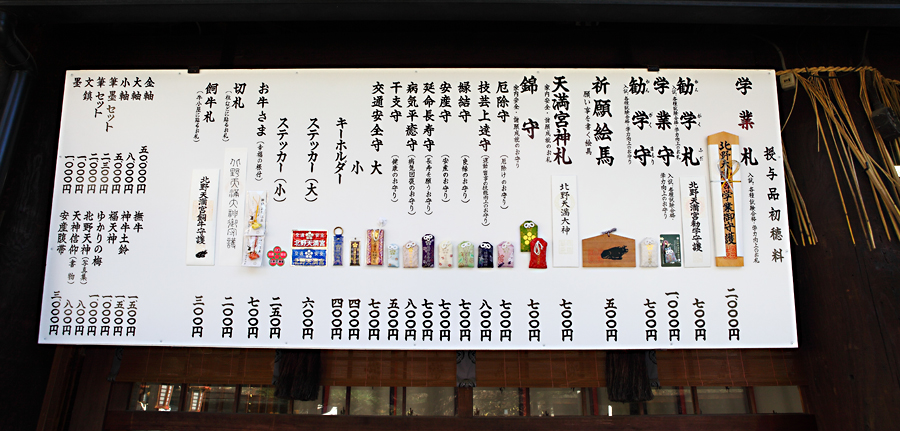 授与品初穂料
学業札
入試・各種試験合格・学力向上のお札
二〇〇〇円
勧学札
入試・各種試験合格・学力向上のお札
七〇〇円
学業守
入試・各種試験合格・学力向上のお守り
一〇〇〇円
勧学守
七〇〇円
祈願絵馬
願い事を書く絵馬
五〇〇円
天満宮神札
家内安全・諸願成就のお札
七〇〇円
錦守
家内安全・諸願成就のお守り
七〇〇円
厄除守
(厄除けのお守り)
七〇〇円
技芸上達守
八〇〇円
縁結守
(良縁のお守り)
七〇〇円
安産守
(安産のお守り)
七〇〇円
延命長寿守
(長寿を願うお守り)
七〇〇円
病気平癒守
(病気回復のお守り)
八〇〇円
干支守
(健康のお守り)
五〇〇円
交通安全守 大
七〇〇円
小
四〇〇円
キーホルダー
四〇〇円
ステッカー(大)
六〇〇円
ステッカー(小)
二五〇円
お牛さま
(幸福の根付)
七〇〇円
切札
二〇〇円
飼牛札
(牛小屋に貼るお札)
三〇〇円
北野天満宮学業御守護
北野天満宮勧学守護
北野天満大神
北野天満宮
北野天満宮飼牛守護
金軸
五〇〇〇円
大軸
八〇〇円
小軸
五〇〇円
筆墨セット
一五〇〇円
筆セット
一三〇〇円
文鎮
一〇〇〇円
墨
一〇〇〇円
撫牛
一五〇〇円
神牛土鈴
一五〇〇円
福天神
一〇〇〇円
ゆかりの梅
北野天神(写真集)
天神信仰(書物)
八〇〇円
安産腹帯
三〇〇〇円